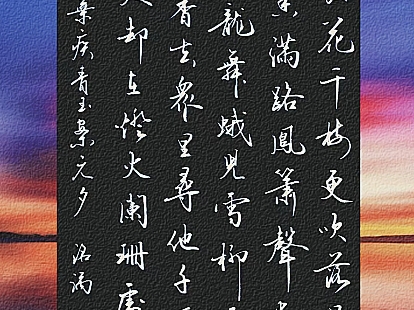 花千樹更吹落
滿路鳳簫聲
龍舞蛾兒雪柳
香去衆里尋他千
却在燈火闌珊處
棄疾青玉案元夕